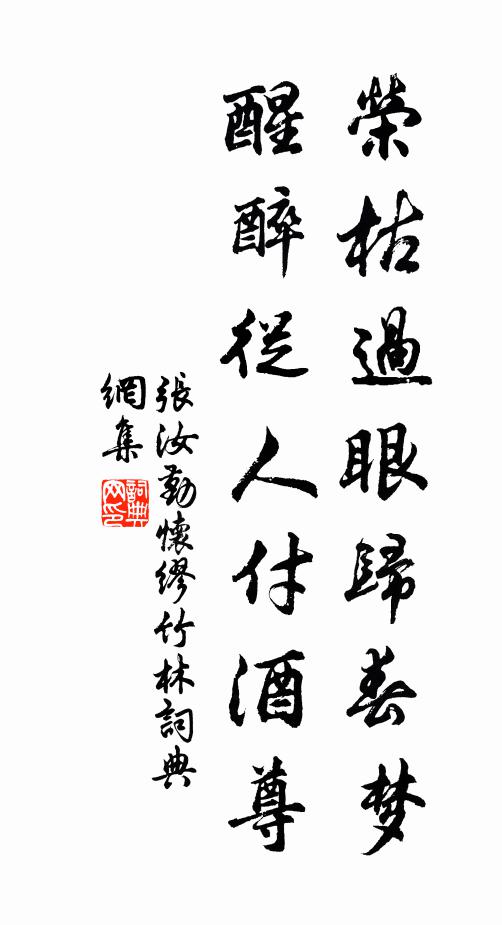 榮枯過眼歸春梦
醒醉從人付酒尊
張汝勤懷繆竹林詞典
網集
詞典
网印